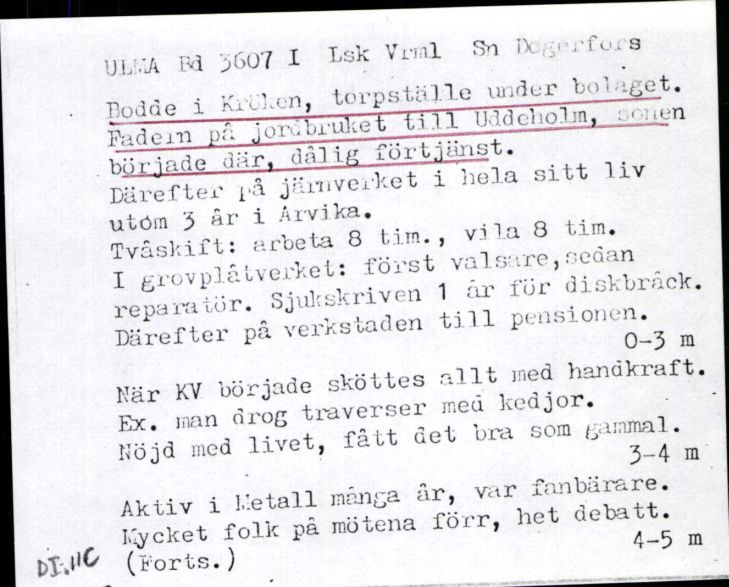 ULMA Bd 3607 I Lsk Vrml Sn Degerfors
Bodde i Kröken, torpställe under bolaget.
Fadern på jordbruket till Uddeholm, sonen
började där, dålig förtjänst.
Därefter på järnverket i hela sitt liv
utom 3 år i Arvika.
Tvåskift: arbeta 8 tim., vila 8 tim.
I grovplåtverket: först valsare, sedan
reparatör. Sjukskriven 1 år för diskbråck.
Därefter på verkstaden till pensionen.
0-3 m
När KV började sköttes allt med handkraft.
Ex. man drog traverser med kedjor.
Nöjd med livet, fått det bra som gammal.
3-4 m
Aktiv i Metall många år, var fanbärare.
Mycket folk på mötena förr, het debatt.
4-5 m
(Forts.)